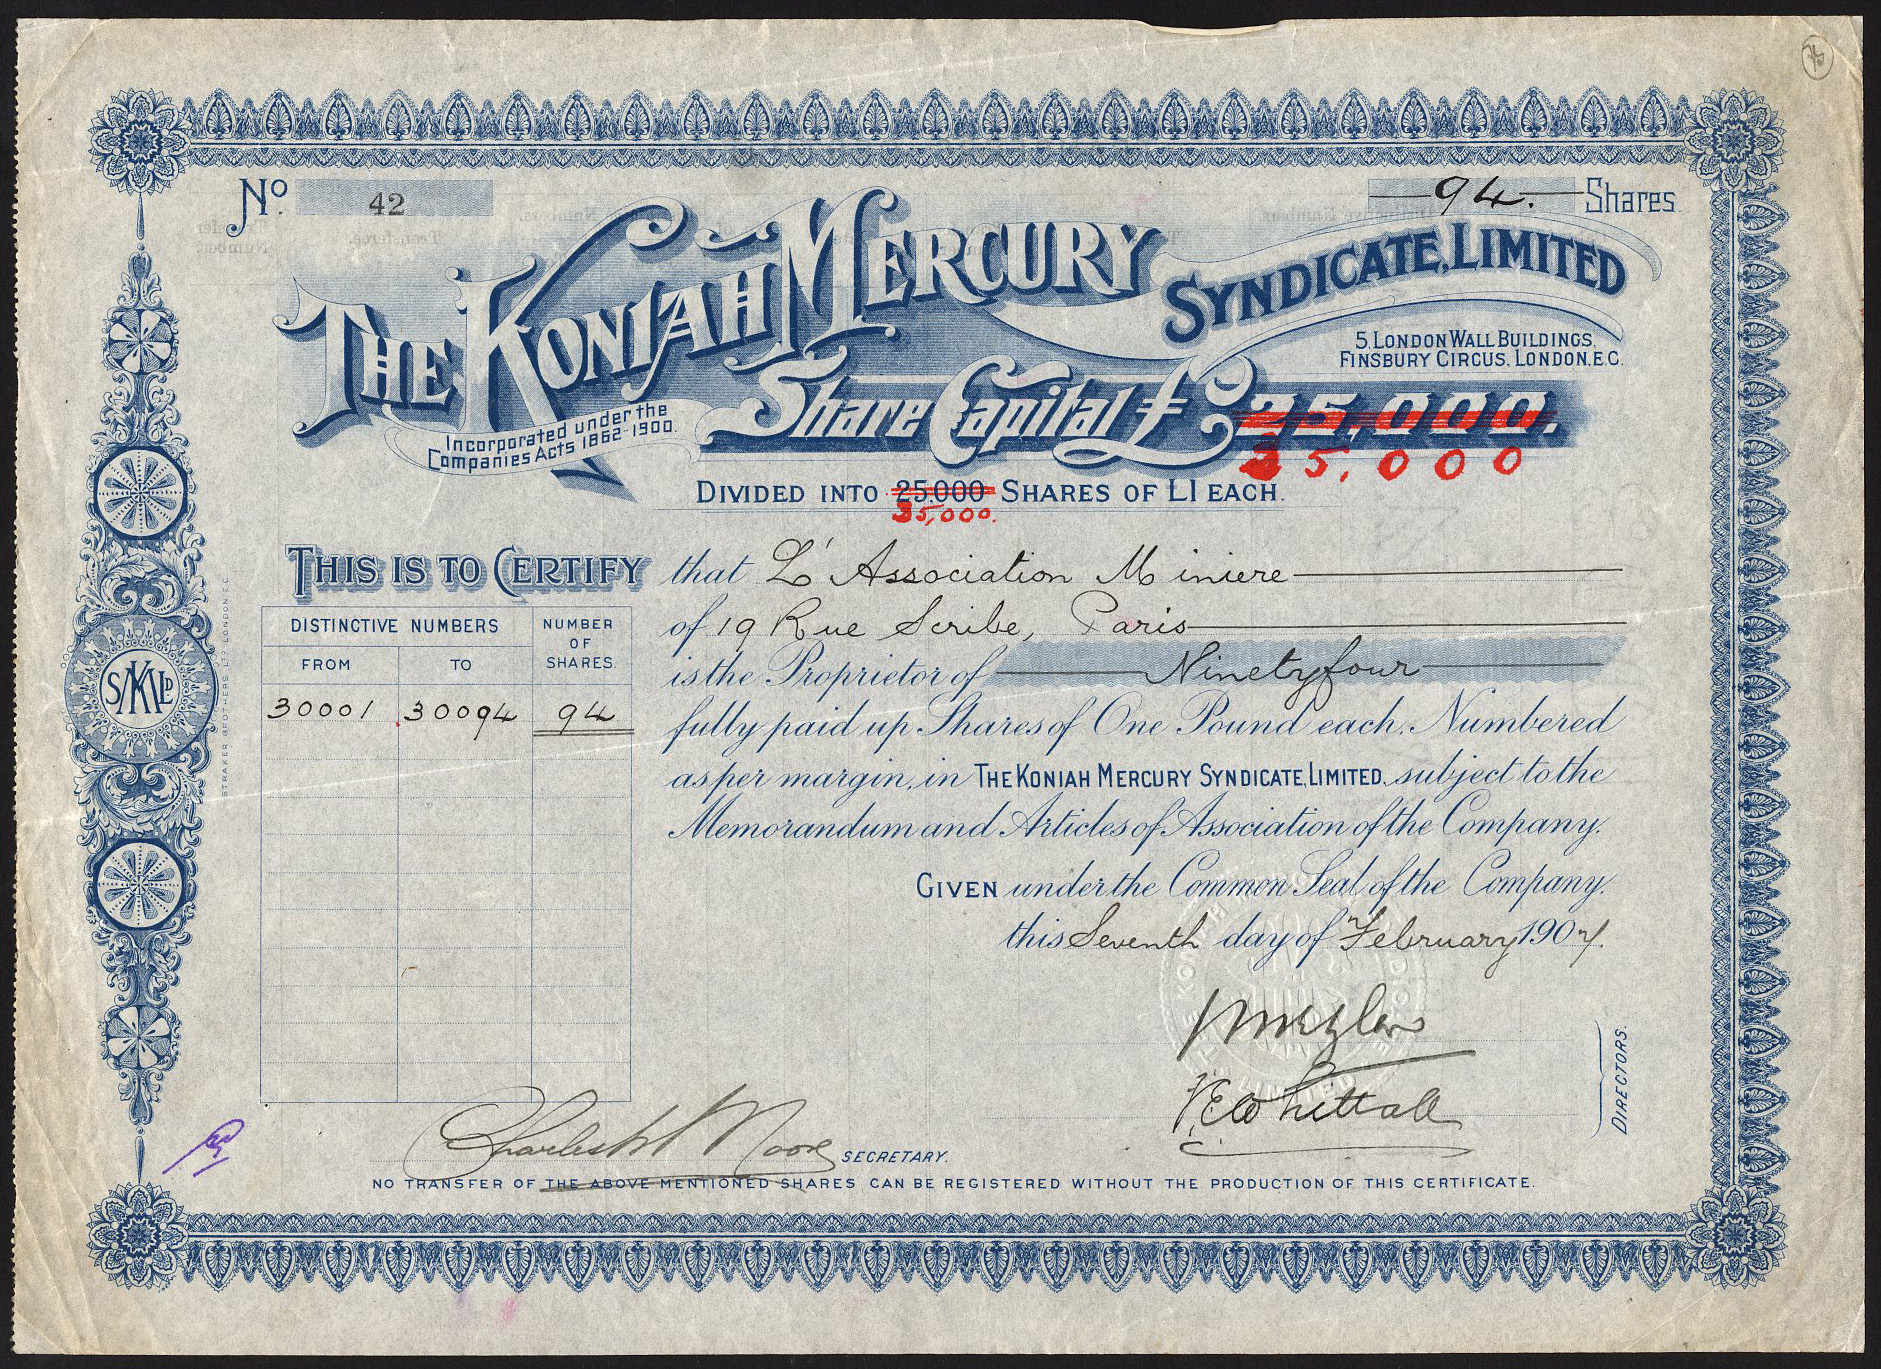 No. 42
94. Shares
THE KONIAH MERCURY SYNDICATE, LIMITED
5, LONDON WALL BUILDINGS,
FINSBURY CIRCUS, LONDON, E.C.
Incorporated under the
Companies Acts 1862-1900.
Share Capital £25,000.
35,000
DIVIDED INTO 25,000 SHARES OF £1 EACH.
35,000.
THIS IS TO CERTIFY that L'Association Miniere
of 19 Rue Scribe, Paris
is the Proprietor of Ninety four
fully paid up Shares of One Pound each, Numbered
as per margin, in THE KONIAH MERCURY SYNDICATE, LIMITED, subject to the
Memorandum and Articles of Association of the Company.
GIVEN under the Common Seal of the Company,
this Seventh day of February 1907.
DISTINCTIVE NUMBERS
NUMBER OF SHARES.
FROM TO
30001 30094 94
STRAKER BROTHERS LTD LONDON E.C.
Whittall
DIRECTORS.
Charles Moore SECRETARY.
NO TRANSFER OF THE ABOVE MENTIONED SHARES CAN BE REGISTERED WITHOUT THE PRODUCTION OF THIS CERTIFICATE.